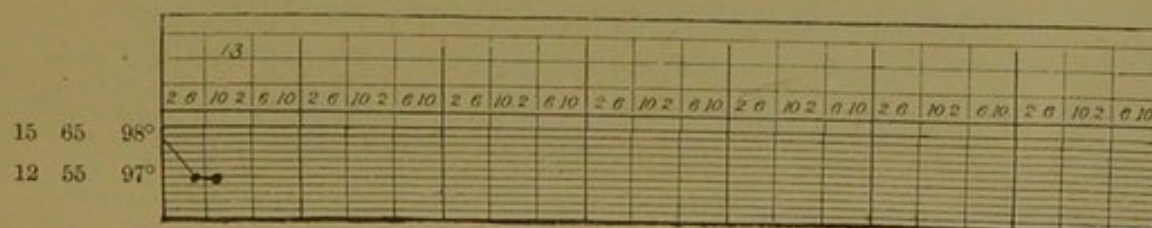 13
2 6 10 2 6 10 2 6 10 2 6 10 2 6 10 2 6 10 2 6 10 2 6 10 2 6 10 2 6 10 2 6 10 2 6 10 2 6 10 2 6 10
15 65 98°
12 55 97°